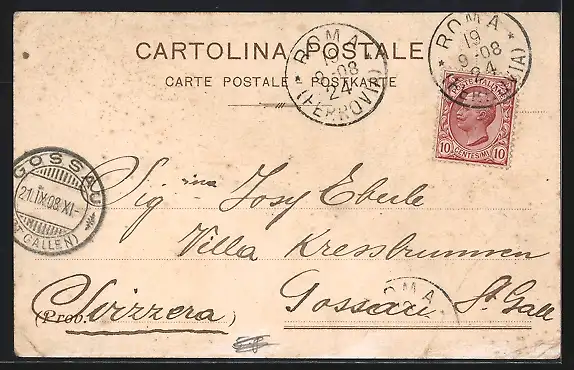 CARTOLINA POSTALE
CARTE POSTALE - POSTKARTE
* ROMA *
19
9-08
24
(FERROVIA)
* ROMA *
19
9-08
24
(FERROVIA)
POSTE ITALIANE
10 CENTESIMI 10
GOSSAU
21.IX.08.XI-
(ST GALLEN)
Sigina Josy Eberle
Villa Kressbrunnen
Gossau St. Gall
(Prob. Svizzera)
ROMA